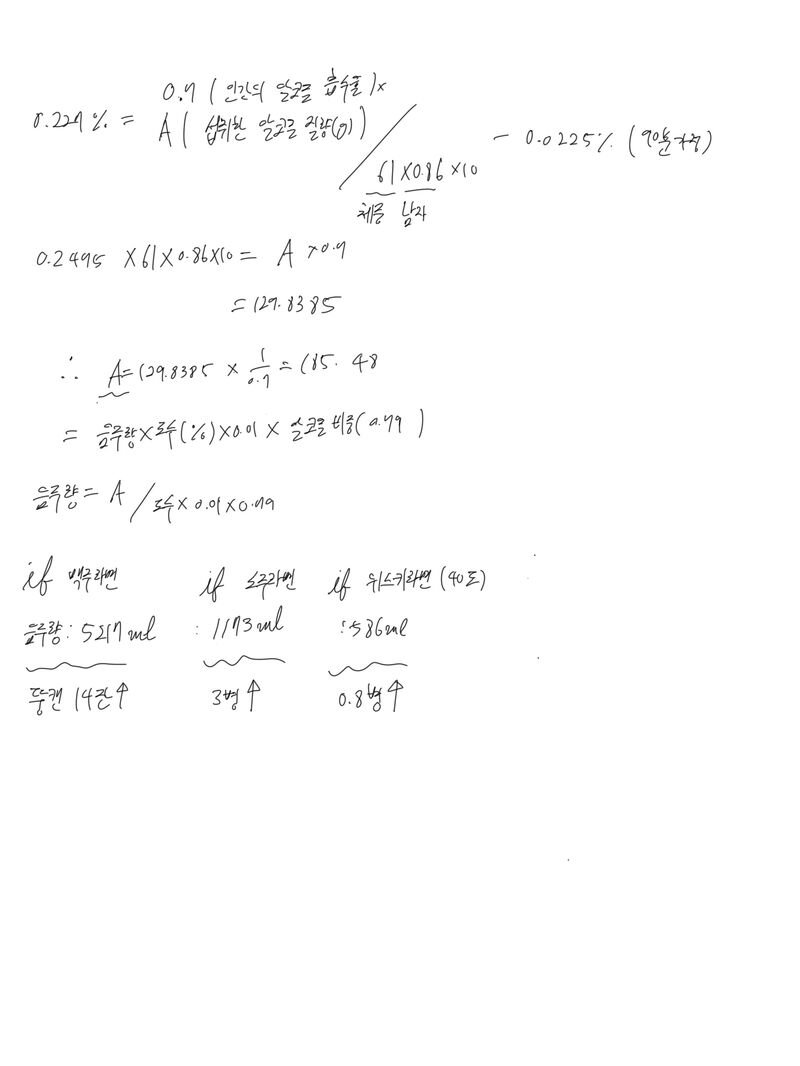 0.7 ( 인간의 알코올 흡수율 ) x
0.227 % = A ( 섭취한 알코올 질량(g) ) / 61 x 0.86 x 10 - 0.0225% ( 90분 가정)
체중 남자
0.2495 x 61 x 0.86 x 10 = A x 0.7
= 129.8385
∴ A = 129.8385 x 1/0.7 = 185.48
= 음주량 x 도수(%) x 0.01 x 알코올 비중( 0.79 )
음주량 = A / 도수 x 0.01 x 0.79
if 맥주라면 if 소주라면 if 위스키라면 (40도)
음주량 : 5217 ml : 1173 ml : 586ml
뚱캔 14잔↑ 3병↑ 0.8병↑